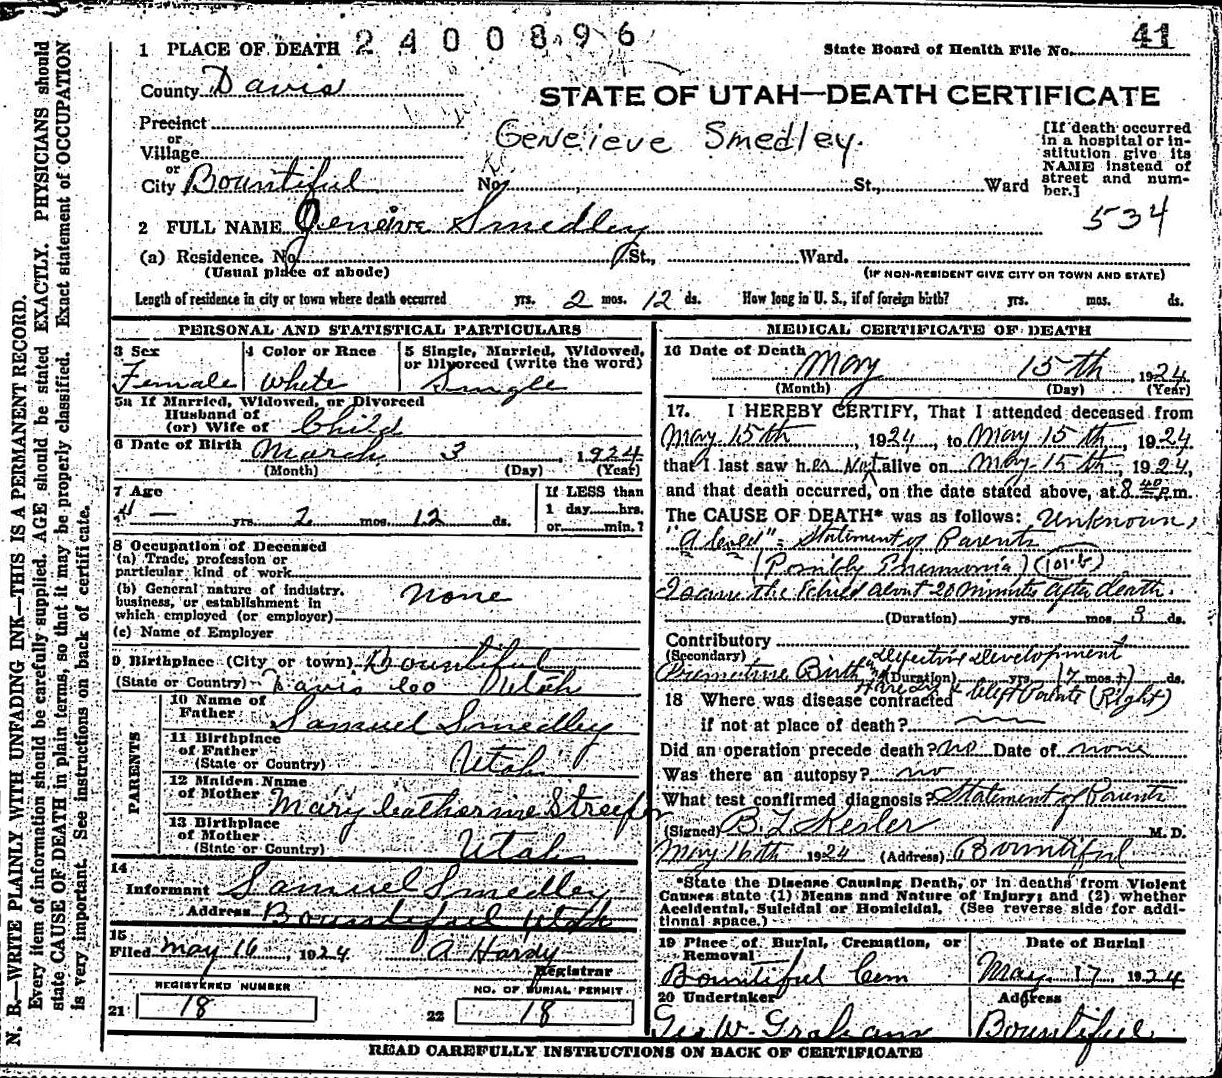 2400896
41
1 PLACE OF DEATH
State Board of Health File No.
County Davis
STATE OF UTAH—DEATH CERTIFICATE
Precinct
or
Village
Genevieve Smedley.
[If death occurred in a hospital or in-
stitution give its
NAME instead of
street and num-
ber.]
or
City Bountiful No. St., Ward
534
2 FULL NAME Geneive Smedley
(a) Residence. No. St., Ward.
(Usual place of abode)
(IF NON-RESIDENT GIVE CITY OR TOWN AND STATE)
Length of residence in city or town where death occurred yrs. 2 mos. 12 ds. How long in U. S., if of foreign birth? yrs. mos. ds.
PERSONAL AND STATISTICAL PARTICULARS
3 Sex 4 Color or Race 5 Single, Married, Widowed,
or Divorced (write the word)
Female White Single
5a If Married, Widowed, or Divorced
Husband of
(or) Wife of Child
6 Date of Birth March 3 1924
(Month) (Day) (Year)
7 Age If LESS than
1 day hrs.
— yrs. 2 mos. 12 ds. or min.?
8 Occupation of Deceased
(a) Trade, profession or
particular kind of work
(b) General nature of industry,
business, or establishment in
which employed (or employer) none
(c) Name of Employer
9 Birthplace (City or town) Bountiful
(State or Country) Davis Co Utah
PARENTS
10 Name of
Father Samuel Smedley
11 Birthplace
of Father
(State or Country) Utah
12 Maiden Name
of Mother Mary Catherine Streeper
13 Birthplace of
Mother
(State or Country) Utah
14
Informant Samuel Smedley
Address Bountiful Utah
15
Filed May 16, 1924 A Hardy
Registrar
REGISTERED NUMBER NO. OF BURIAL PERMIT
21 18 22 18
MEDICAL CERTIFICATE OF DEATH
16 Date of Death
May 15th, 1924
(Month) (Day) (Year)
17. I HEREBY CERTIFY, That I attended deceased from
May 15th, 1924, to May 15th, 1924
that I last saw her Not alive on May 15th, 1924,
and that death occurred, on the date stated above, at 8 40 P.m.
The CAUSE OF DEATH* was as follows: Unknown,
Statement of Parents
(Possibly Pneumonia) (101.b)
I saw the child about 20 minutes after death.
(Duration) yrs. mos. 3 ds.
Contributory
(Secondary) Defective Development
Premature Birth (Duration) yrs. (7 mos.) ds.
Harelip & Cleft Palate (Right)
18 Where was disease contracted
if not at place of death?
Did an operation precede death? no Date of none
Was there an autopsy? no
What test confirmed diagnosis? Statement of Parents
(Signed) B. L. Kesler M. D.
May 16th 1924 (Address) Bountiful
*State the Disease Causing Death, or in deaths from Violent
Causes state (1) Means and Nature of Injury; and (2) whether
Accidental, Suicidal or Homicidal. (See reverse side for addi-
tional space.)
19 Place of Burial, Cremation, or
Removal
Date of Burial
Bountiful Cem May 17 1924
20 Undertaker Address
Geo W. Graham Bountiful
READ CAREFULLY INSTRUCTIONS ON BACK OF CERTIFICATE
N. B.—WRITE PLAINLY WITH UNFADING INK—THIS IS A PERMANENT RECORD.
Every item of information should be carefully supplied. AGE should be stated EXACTLY. PHYSICIANS should
state CAUSE OF DEATH in plain terms, so that it may be properly classified. Exact statement of OCCUPATION
is very important. See instructions on back of certificate.